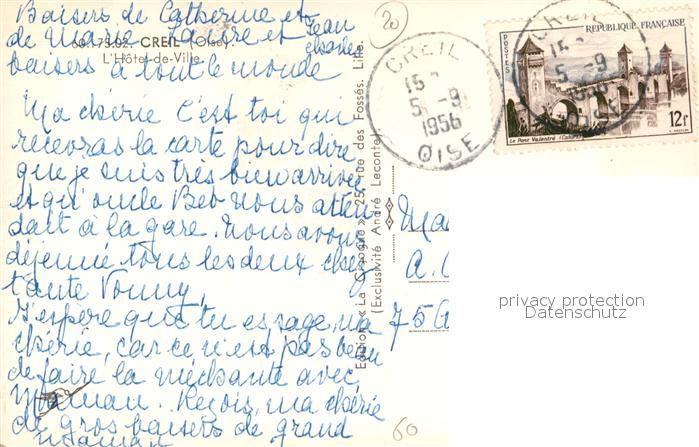 Baisers de Catherine et
de Marie Claire et Jean
baisers à tout le monde
60.175.02. CREIL (Oise).
L'Hôtel-de-Ville
Ma chérie c'est toi qui
recevras la carte pour dire
que je suis très bien arrivée
et qu'oncle Beb nous atten
dait à la gare. Nous avons
déjeuné tous les deux chez
tante Vonny,
J'espère que tu es sage, ma
chérie, car ce n'est pas beau
de faire la méchante avec
Maman. Reçois, ma chérie
de gros baisers de grand
maman
Editions « La Cigogne », 25, rue des Fossés, Lille.
(Exclusivité André Leconte)
20
CREIL
15
5-9
1956
OISE
RÉPUBLIQUE FRANÇAISE
POSTES
12F
Le Pont Valentré (Cahors)
CREIL
15
5-9
1956
OISE
Ma
A.
75
privacy protection
Datenschutz
60